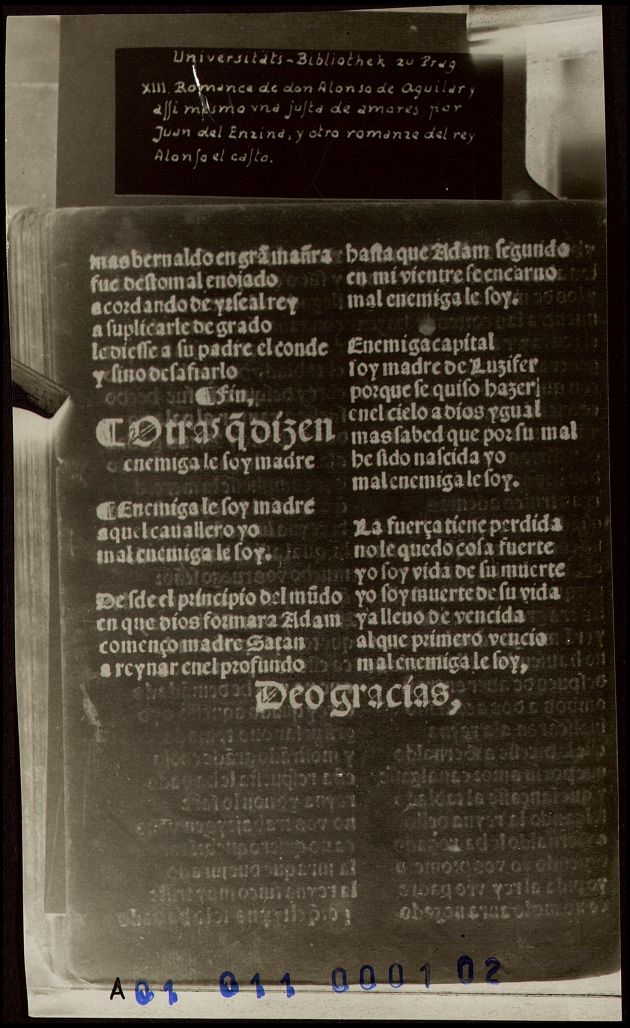 Universitäts-Bibliothek zu Prag
XIII. Romance de don Alonso de aguilar y
assi mesmo vna justa de amores por
Juan del Enzina, y otro romanze del rey
Alonso el casto.
mas bernaldo en grã mañra
fue destom al enojado
acordando de yrse al rey
a suplicarle de grado
le diesse a su padre el conde
y sino desafiarlo
¶ Fin,
¶ Otras q̃ dizen
enemiga le soy madre
¶ Enemiga le soy madre
aquel cauallero yo
mal enemiga le soy.
Desde el principio del mũdo
en que dios formara Adam
començo madre Satan
a reynar enel profundo
hasta que Adam segundo
en mi vientre se encarno
mal enemiga le soy.
Enemiga capital
soy madre de Luzifer
porque se quiso hazer
enel cielo a dios ygual
mas sabed que por su mal
he sido nascida yo
mal enemiga le soy.
La fuerça tiene perdida
no le quedo cosa fuerte
yo soy vida de su muerte
yo soy muerte de su vida
ya lleuo de vencida
al que primero vencio
mal enemiga le soy,
Deo gracias,
A01 011 0001 02